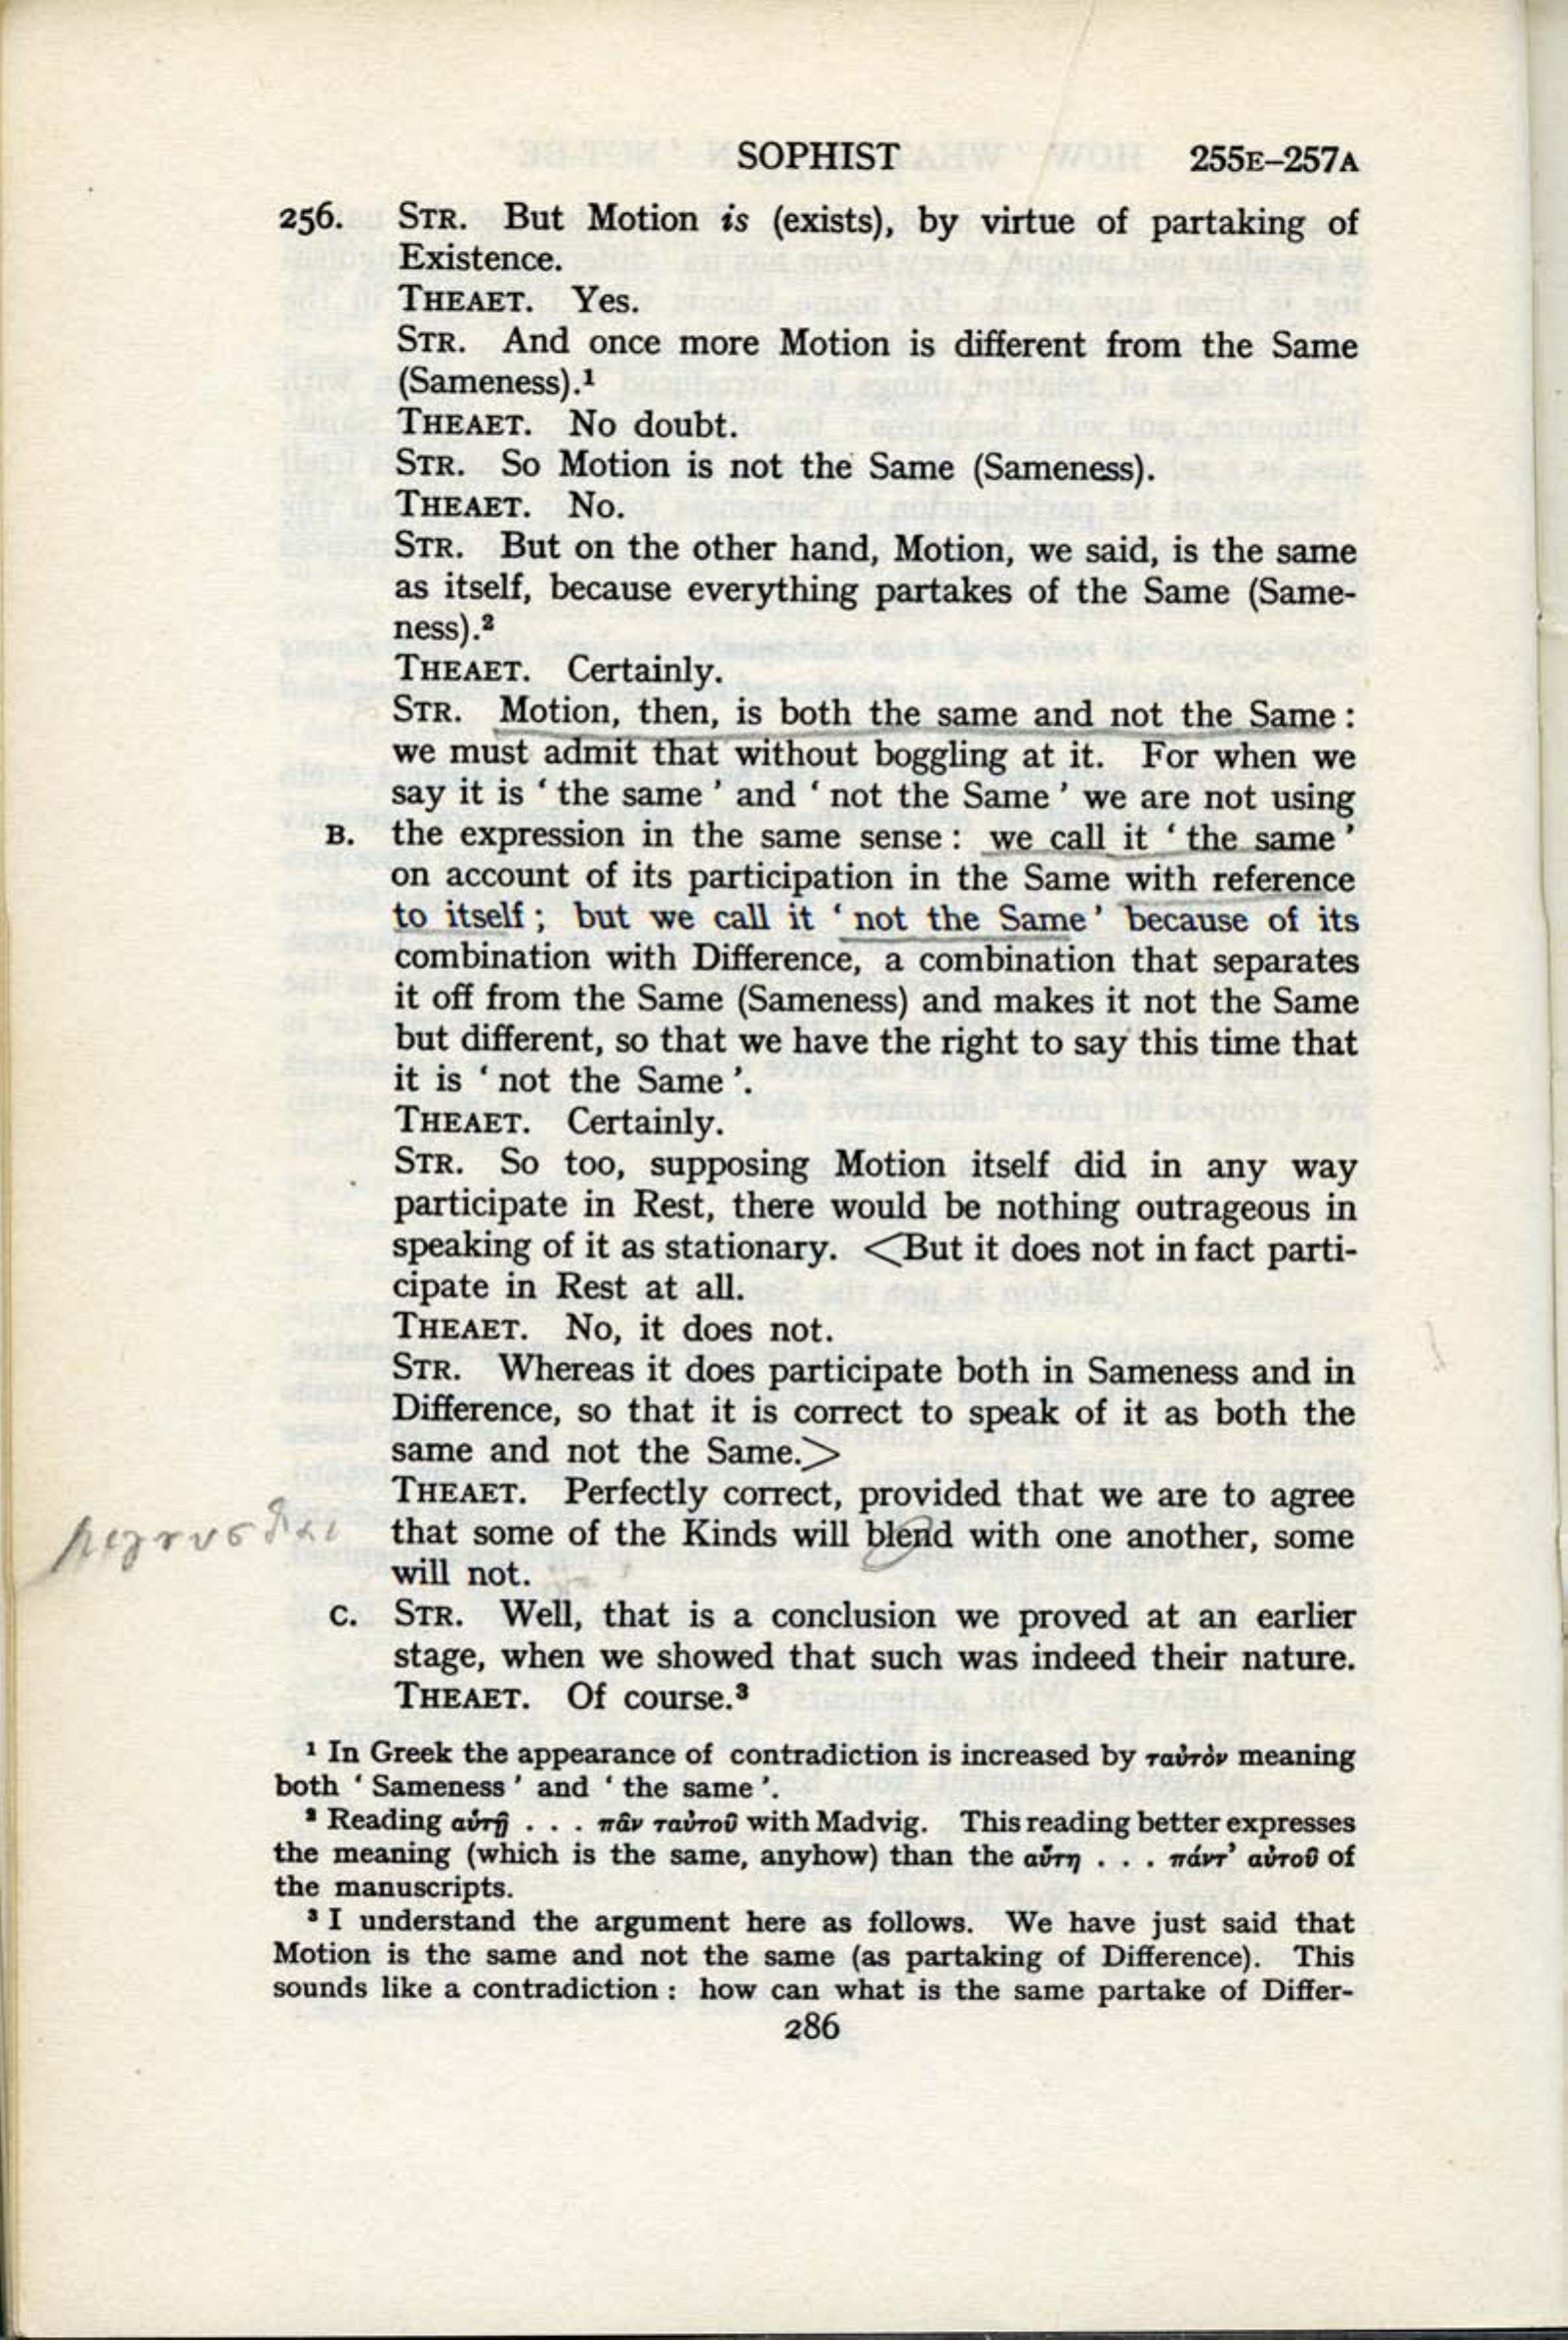 SOPHIST 255E–257A
256. STR. But Motion is (exists), by virtue of partaking of
Existence.
THEAET. Yes.
STR. And once more Motion is different from the Same
(Sameness).¹
THEAET. No doubt.
STR. So Motion is not the Same (Sameness).
THEAET. No.
STR. But on the other hand, Motion, we said, is the same
as itself, because everything partakes of the Same (Same-
ness).²
THEAET. Certainly.
STR. Motion, then, is both the same and not the Same :
we must admit that without boggling at it. For when we
say it is ‘ the same ’ and ‘ not the Same ’ we are not using
B. the expression in the same sense : we call it ‘ the same ’
on account of its participation in the Same with reference
to itself ; but we call it ‘ not the Same ’ because of its
combination with Difference, a combination that separates
it off from the Same (Sameness) and makes it not the Same
but different, so that we have the right to say this time that
it is ‘ not the Same ’.
THEAET. Certainly.
STR. So too, supposing Motion itself did in any way
participate in Rest, there would be nothing outrageous in
speaking of it as stationary. <But it does not in fact parti-
cipate in Rest at all.
THEAET. No, it does not.
STR. Whereas it does participate both in Sameness and in
Difference, so that it is correct to speak of it as both the
same and not the Same.>
THEAET. Perfectly correct, provided that we are to agree
that some of the Kinds will blend with one another, some
will not.
C. STR. Well, that is a conclusion we proved at an earlier
stage, when we showed that such was indeed their nature.
THEAET. Of course.³
¹ In Greek the appearance of contradiction is increased by ταὐτὸν meaning
both ‘ Sameness ’ and ‘ the same ’.
² Reading αὑτῇ . . . πᾶν ταὐτοῦ with Madvig. This reading better expresses
the meaning (which is the same, anyhow) than the αὕτη . . . πάντ’ αὐτοῦ of
the manuscripts.
³ I understand the argument here as follows. We have just said that
Motion is the same and not the same (as partaking of Difference). This
sounds like a contradiction : how can what is the same partake of Differ-
286